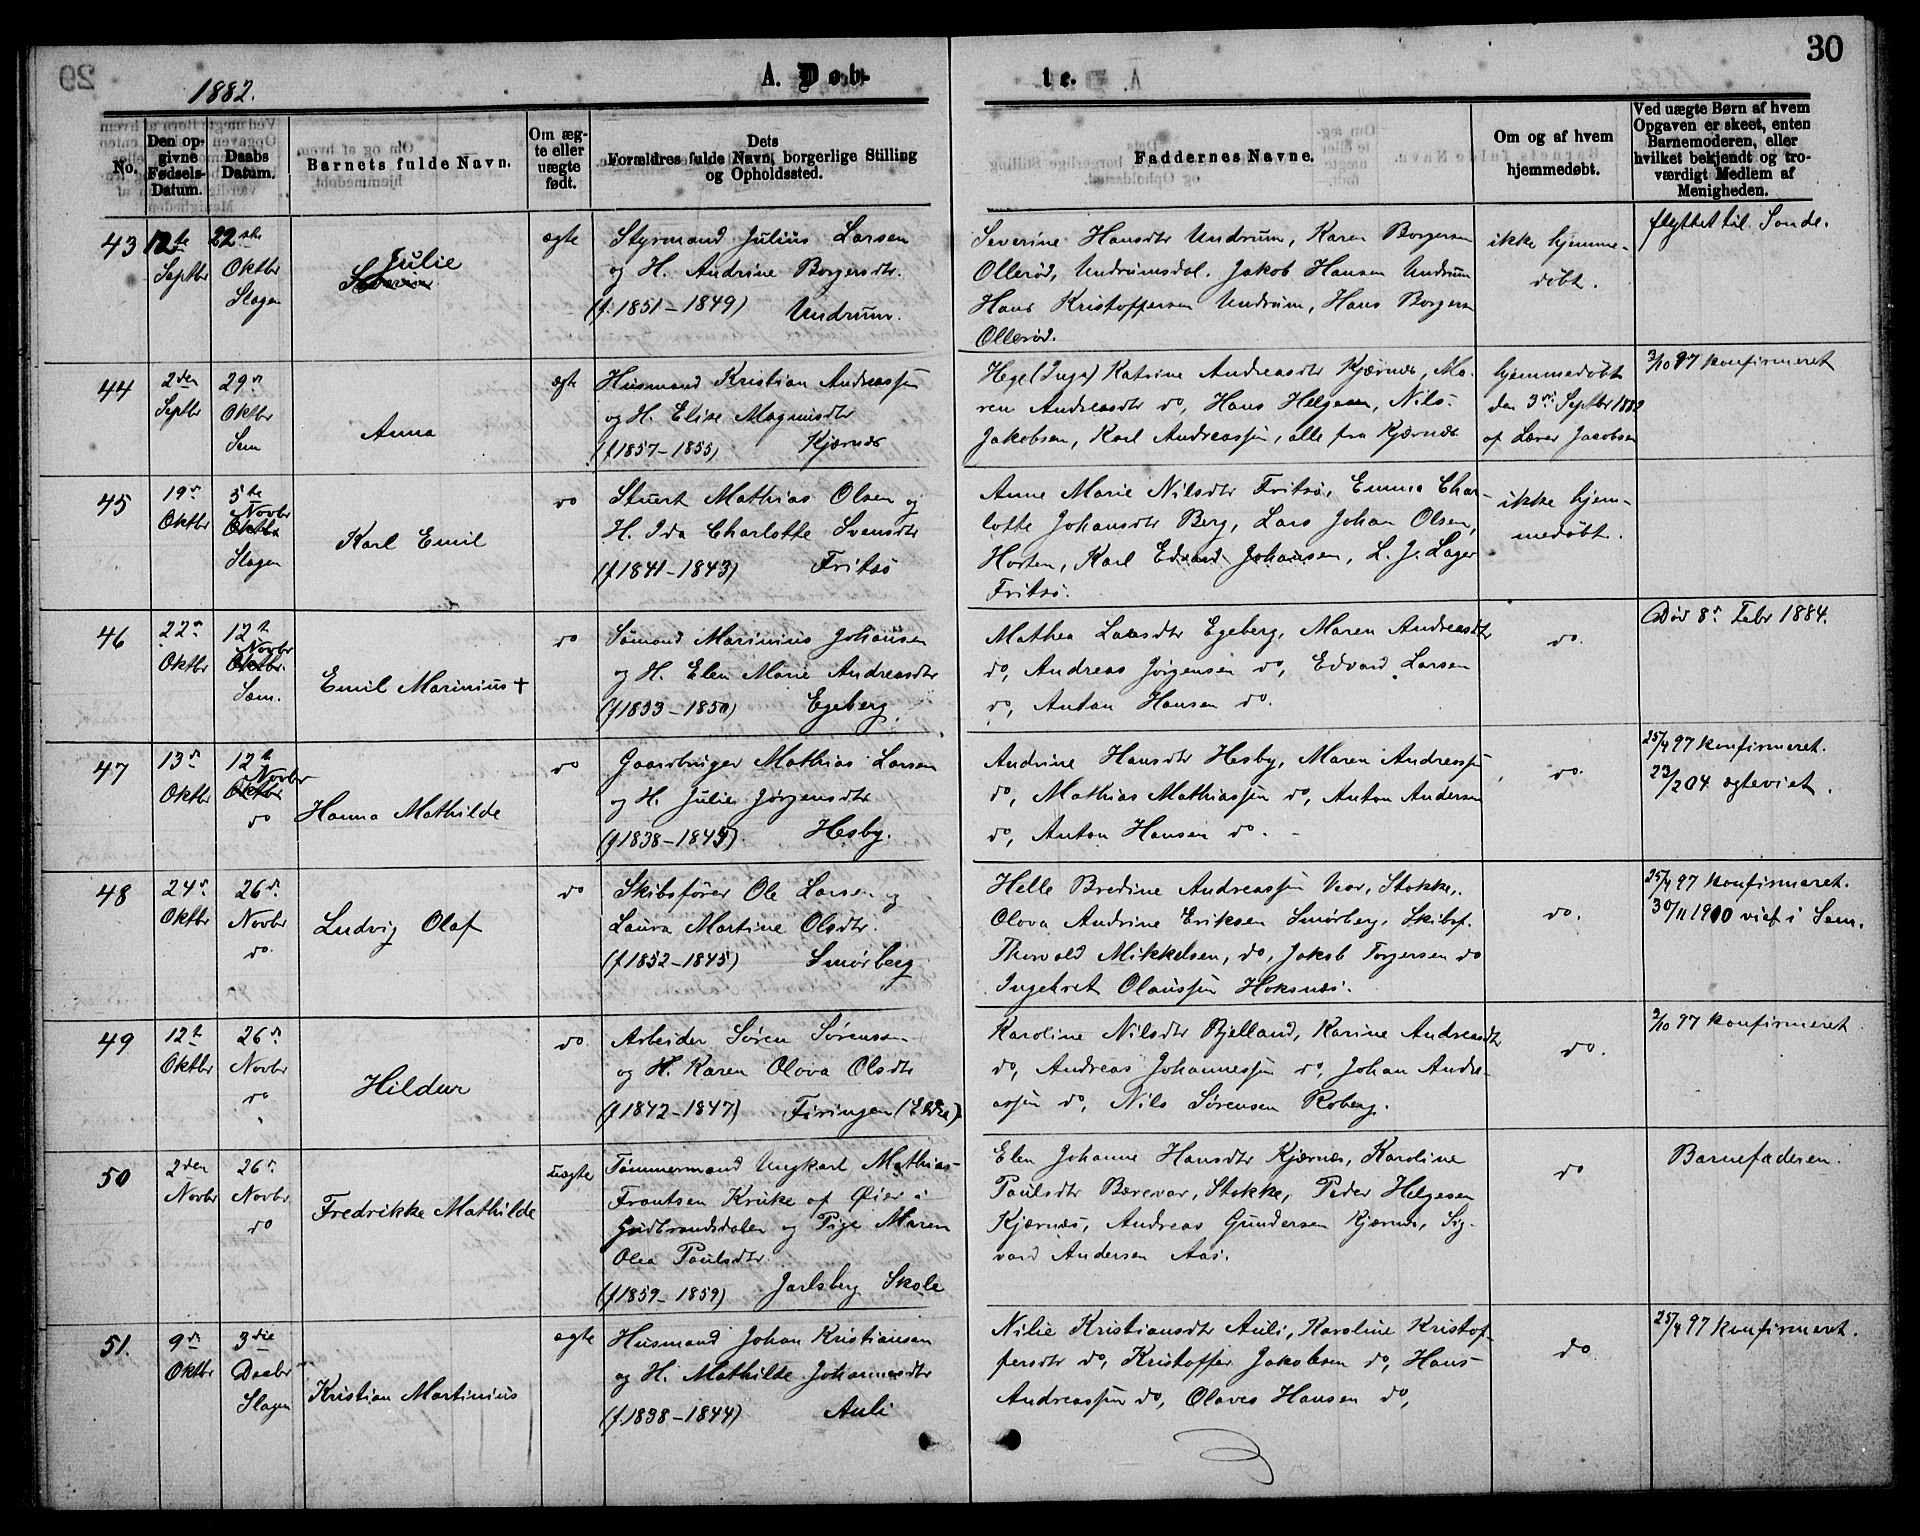 30
1882.
A. Døb-
te.
No.
Den op-
givne
Fødsels-
Datum.
Daabs
Datum.
Barnets fulde Navn.
Om æg-
te eller
uægte
født.
Dets
Forældres fulde Navn, borgerlige Stilling
og Opholdssted.
Faddernes Navne.
Om og af hvem
hjemmedøbt.
Ved uægte Børn af hvem
Opgaven er skeet, enten
Barnemoderen, eller
hvilket bekjendt og tro-
værdigt Medlem af
Menigheden.
43
12te
Septbr
22de
Oktbr
Slagen
Julie
ægte
Styrmand Julius Larsen
og H. Andrine Borgersdtr.
(f. 1851-1849) Undrum.
Severine Hansdtr Undrum, Karen Borgersen
Ollerød, Undrumsdal. Jakob Hansen Undrum
Hans Kristoffersen Undrum, Hans Borgersen
Ollerød.
ikke hjemme-
døbt.
flyttet til Sonde.
44
2den
Septbr
29de
Oktbr
Sem
Anna
ægte
Husmand Kristian Andreassen
og H. Elise Magnusdtr
(f 1857-1855) Kjærnæs
Hege (Inga) Katrine Andreasdtr Kjærnæs, Ma-
ren Andreasdtr do, Hans Helgesen, Nils
Jakobsen, Karl Andreassen, alle fra Kjærnæs
hjemmedøbt
den 3die Septbr 1882
af Lærer Jacobsen
3/10 97 konfirmeret
45
19de
Oktbr
5te
Novbr
Oktbr
Slagen
Karl Emil
do
Stuert Mathias Olsen og
H. Ida Charlotte Svensdtr
(f 1841-1843) Fritsø
Anne Marie Nilsdtr Fritsø, Emma Char-
lotte Johansdtr Berg, Lars Johan Olsen,
Horten, Karl Edvard Johansen, L. J. Lager
Fritsø.
ikke hjem-
medøbt.
46
22de
Oktbr
12te
Novbr
Oktbr.
Sem.
Emil Marinius +
do
Sømand Marinius Johansen
og H. Elen Marie Andreasdtr
(f 1853-1850) Egeberg.
Mathea Larsdtr Egeberg, Maren Andreasdtr
do, Andreas Jørgensen do, Edvard Larsen
do, Anton Hansen do.
do
Død 8de Febr 1884.
47
13de
Oktbr
12te
Novbr
Oktbr
do
Hanna Mathilde
do
Gaardbruger Mathias Larsen
og H. Julie Jørgensdtr
(f 1838-1845). Hesby.
Andrine Hansdtr Hesby, Maren Andreassen
do, Mathias Mathiassen do, Anton Andersen
do, Anton Hansen do.
do
25/4 97 konfirmeret.
23/2 04 ægteviet.
48
24de
Oktbr
26de
Novbr
do.
Ludvig Olaf
do
Skibsfører Ole Larsen og
Laura Martine Olsdtr.
(f 1852-1845) Smørberg
Helle Bredine Andreassen Vear, Stokke,
Olova Andrine Eriksen Smørberg, Skibsf.
Thorvald Mikkelsen, do, Jakob Torgersen do
Ingebret Olaussen Hoksnæs.
do.
25/4 97 konfirmeret.
30/11 1900 viet i Sem.
49
12te
Oktbr
26de
Novbr
do
Hildur
do.
Arbeider Søren Sørensen
og H. Karen Olova Olsdtr
(f 1842-1847) Firingen (Eldre)
Karoline Nilsdtr Bjelland, Karine Andreasdtr
do, Andreas Johannessen do, Johan Andre-
assen do, Nils Sørensen Roberg.
do.
2/10 97 konfirmeret
50
2den
Novbr
26de
Novbr
do
Fredrikke Mathilde
uægte
Tømmermand Ungkarl Mathias
Frantsen Kruke af Øier i
Gudbrandsdalen og Pige Maren
Olea Paulsdtr.
(f 1859-1859) Jarlsberg Skole
Elen Johanne Hansdtr Kjærnæs, Karoline
Paulsdtr Bærevar, Stokke, Peder Helgesen
Kjærnæs, Andreas Gundersen Kjærnæs, Sig-
vard Andersen Aas.
do
Barnefaderen.
51.
9de
Oktbr
3die
Decbr
Slagen
Kristian Martinius
ægte
Husmand Johan Kristiansen
og H. Mathilde Johannesdtr
(f. 1838-1844) Auli
Nilie Kristiansdtr Auli, Karoline Kristof-
fersdtr do, Kristoffer Jakobsen do, Hans
Andreassen do, Olaves Hansen do,
do
25/4 97 konfirmeret.